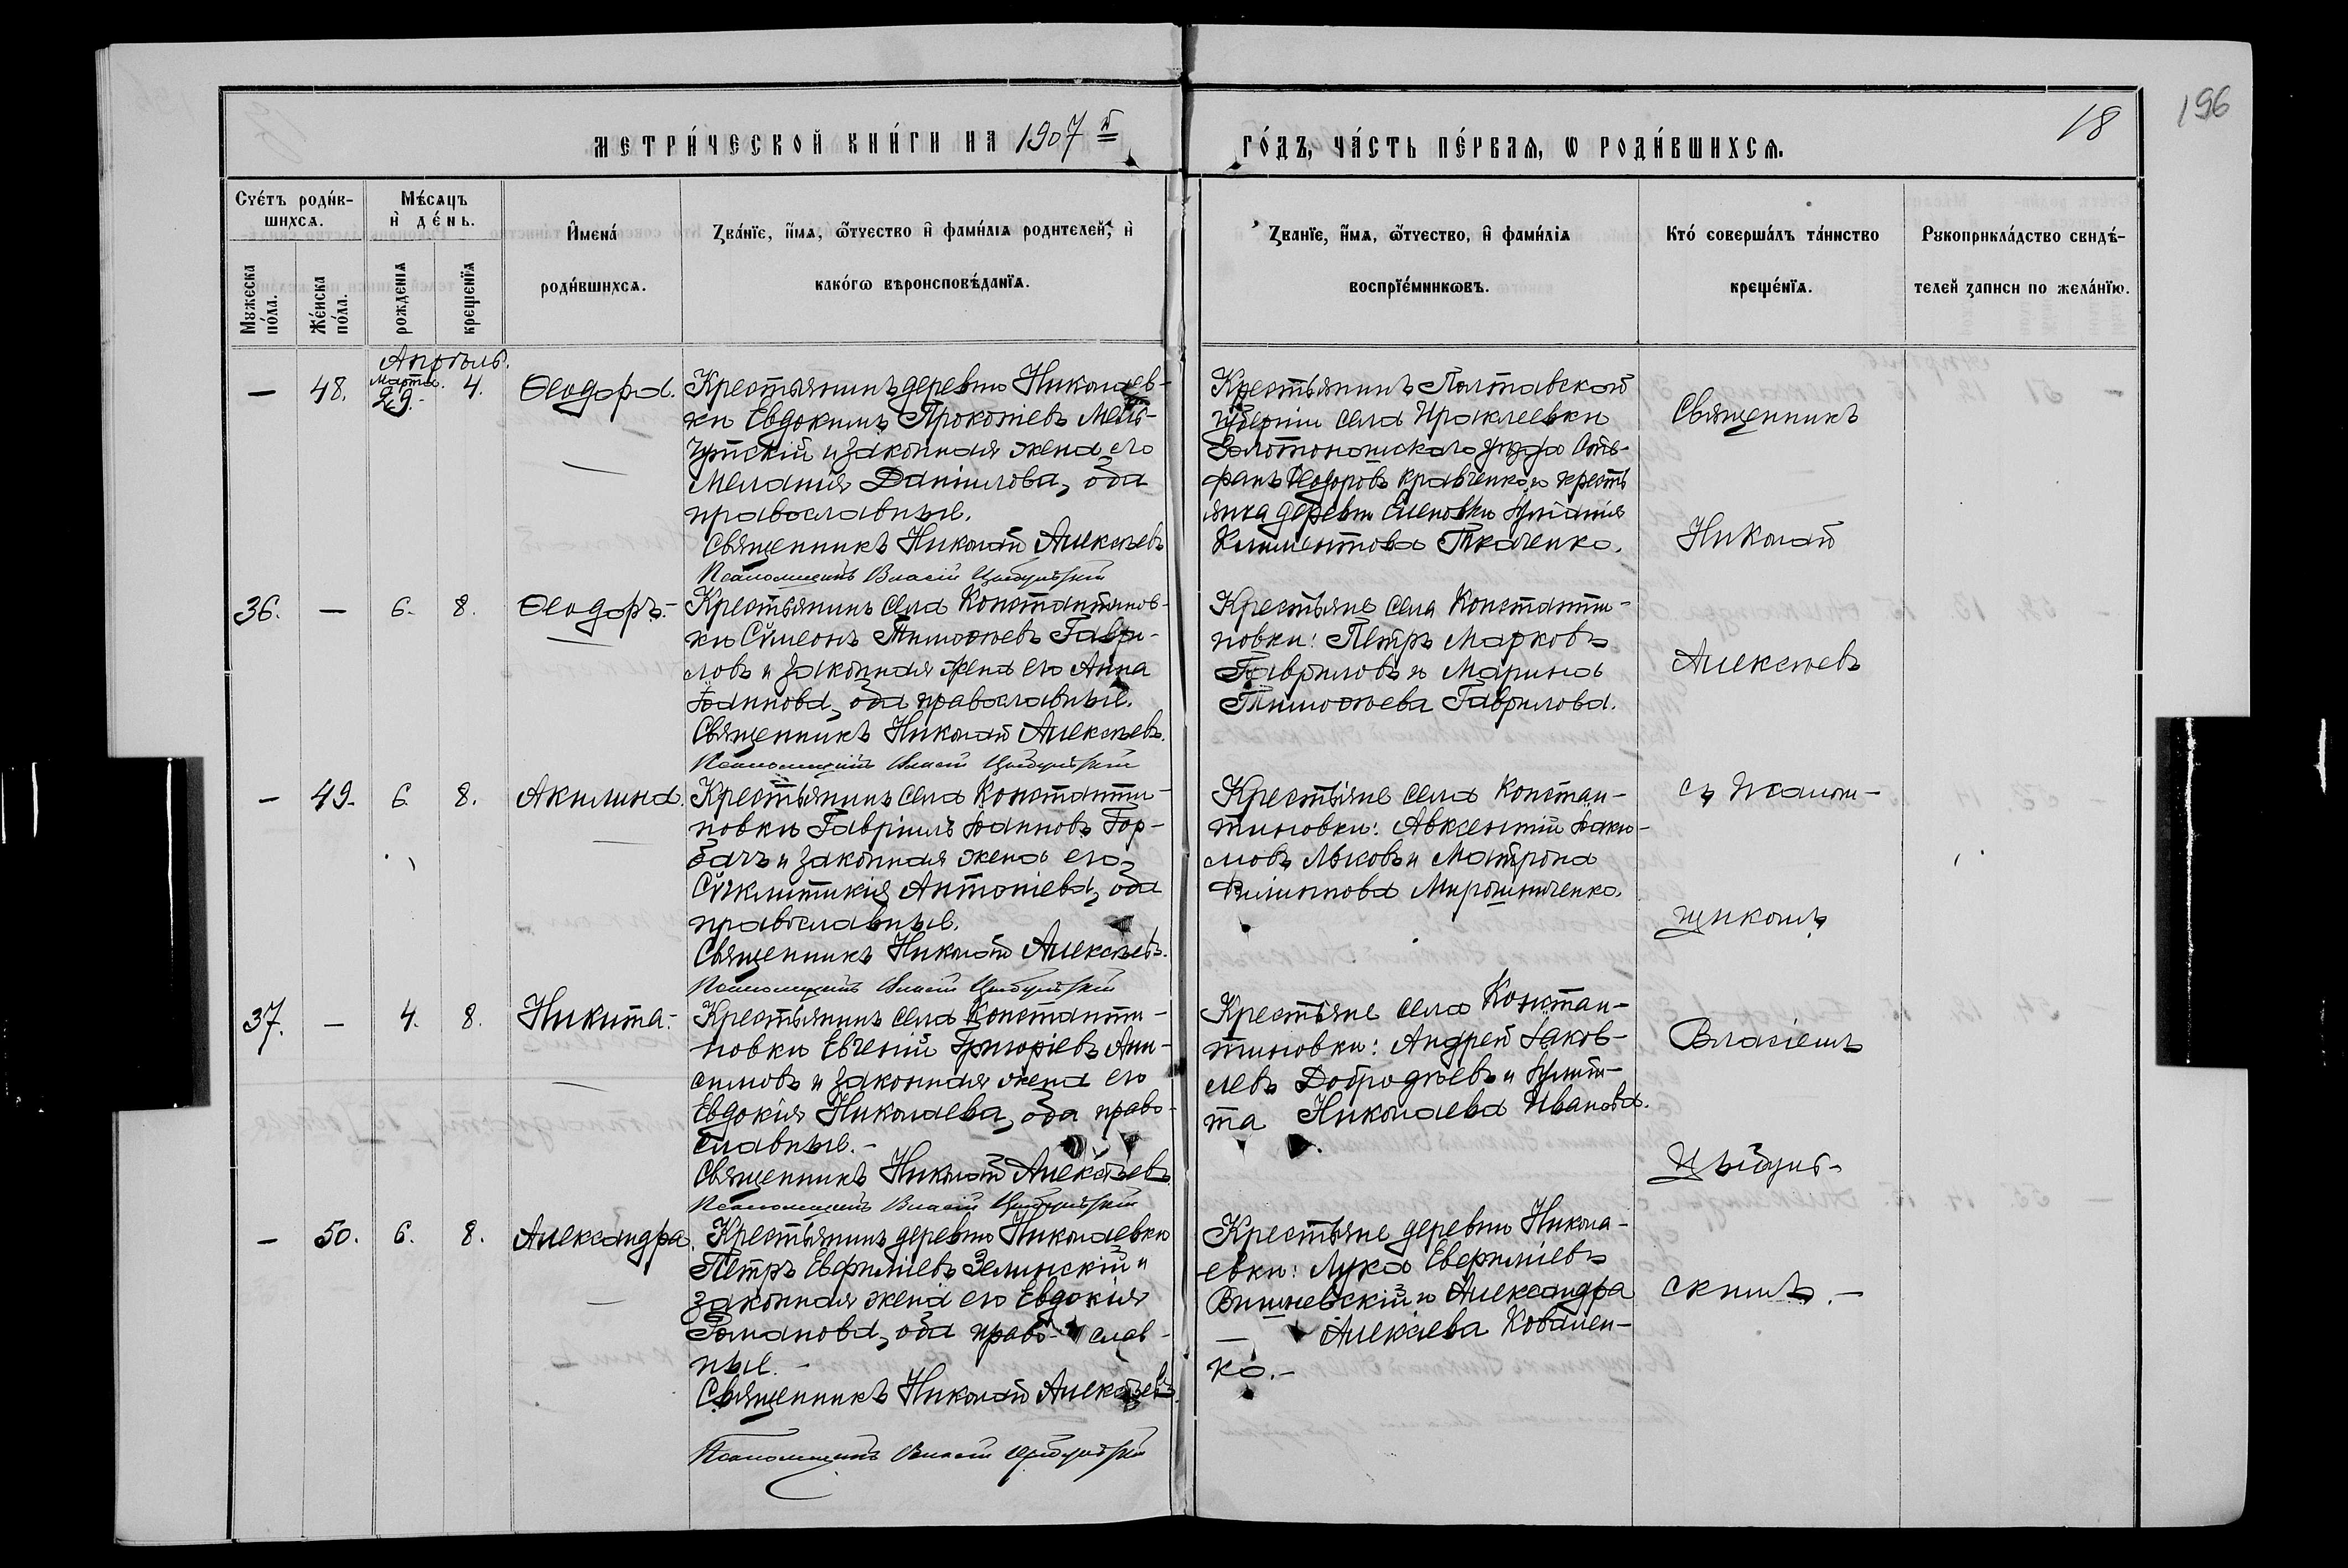 196
18
МЕТРИ́ЧЕСКОЙ КНИ́ГИ НА 1907 й
ГО́ДЪ, ЧА́СТЬ ПЕ́РВАѦ, Ѡ РОДИ́ВШИХСѦ.
Сче́тъ роди́в-
шихсѧ.
Мѣ́сѧцъ
и҆ де́нь.
И҆мена́
роди́вшихсѧ.
Зва́нїе, и҆́мѧ, ѻ҆́тчество и҆ фами́лїѧ родителей, и҆
како́гѡ вѣроисповѣ́данїѧ.
Званїе, и҆́мѧ, ѻ҆́тчество, и҆ фами́лїѧ
воспрїе́мникѡвъ.
Кто́ соверша́лъ та́инство
креще́нїѧ.
Рꙋкоприкла́дство свидѣ́-
телей записи по жела́нїю.
Мꙋжеска
по́ла.
Же́нска
по́ла.
рожденїѧ
креще́нїѧ
Апрѣль.
— 48. Марта 29. 4. Ѳеодора.
Крестьянинъ деревни Николаев-
ки Евдокимъ Прокопіевъ
и законная жена его
Меланія Даніилова, оба
православные.
Священникъ Николай Алексѣевъ
Псаломщикъ Власій Цыбульскій
Крестьянинъ Полтавской
губерніи села Ираклеевки
Золотоношскаго уѣзда Сте-
фанъ Ѳеодоровъ Кравченко и кресть
янка деревни Еленовки Іуліанія
Климентова Ткаченко.
36. — 6. 8. Ѳеодоръ.
Крестьянинъ села Константинов-
ки Сѵмеонъ Тимоѳеевъ Гаври-
ловъ и законная жена его Анна
Іоаннова, оба православные.
Священникъ Николай Алексѣевъ.
Псаломщикъ Власій Цыбульскій
Крестьяне села Константи-
новки: Петръ Марковъ
Гавриловъ и Марина
Тимоѳеева Гаврилова.
— 49. 6. 8. Акилина.
Крестьянинъ села Константи-
новки Гавріилъ Іоанновъ Гор-
бачъ и законная жена его
Сѵнклитикія Антоніева, оба
православные.
Священникъ Николай Алексѣевъ.
Псаломщикъ Власій Цыбульскій
Крестьяне села Констан-
тиновки: Авксентій Іаки-
мовъ Лысковъ и Матрона
Филиппова Мирошниченко.
37. — 4. 8. Никита.
Крестьянинъ села Константи-
новки Евгеній Григоріевъ Ани-
симовъ и законная жена его
Евдокія Николаева, оба право-
славные.-
Священникъ Николай Алексѣевъ
Псаломщикъ Власій Цыбульскій
Крестьяне села Констан-
тиновки: Андрей Іаков-
левъ Добродѣевъ и Іулит-
та Николаева Иванова.
— 50. 6. 8. Александра.
Крестьянинъ деревни Николаевки
Петръ Евфиміевъ Зелинскій и
законная жена его Евдокія
Романова, оба право-слав-
ные.-
Священникъ Николай Алексѣевъ.
Псаломщикъ Власій Цыбульскій
Крестьяне деревни Никола-
евки: Лука Евфиміевъ
Вишневскій и Александра
Алексѣева Ковален-
ко.-
Священникъ
Николай
Алексѣевъ
съ псалом-
щикомъ
Власіемъ
Цыбуль-
скимъ.-